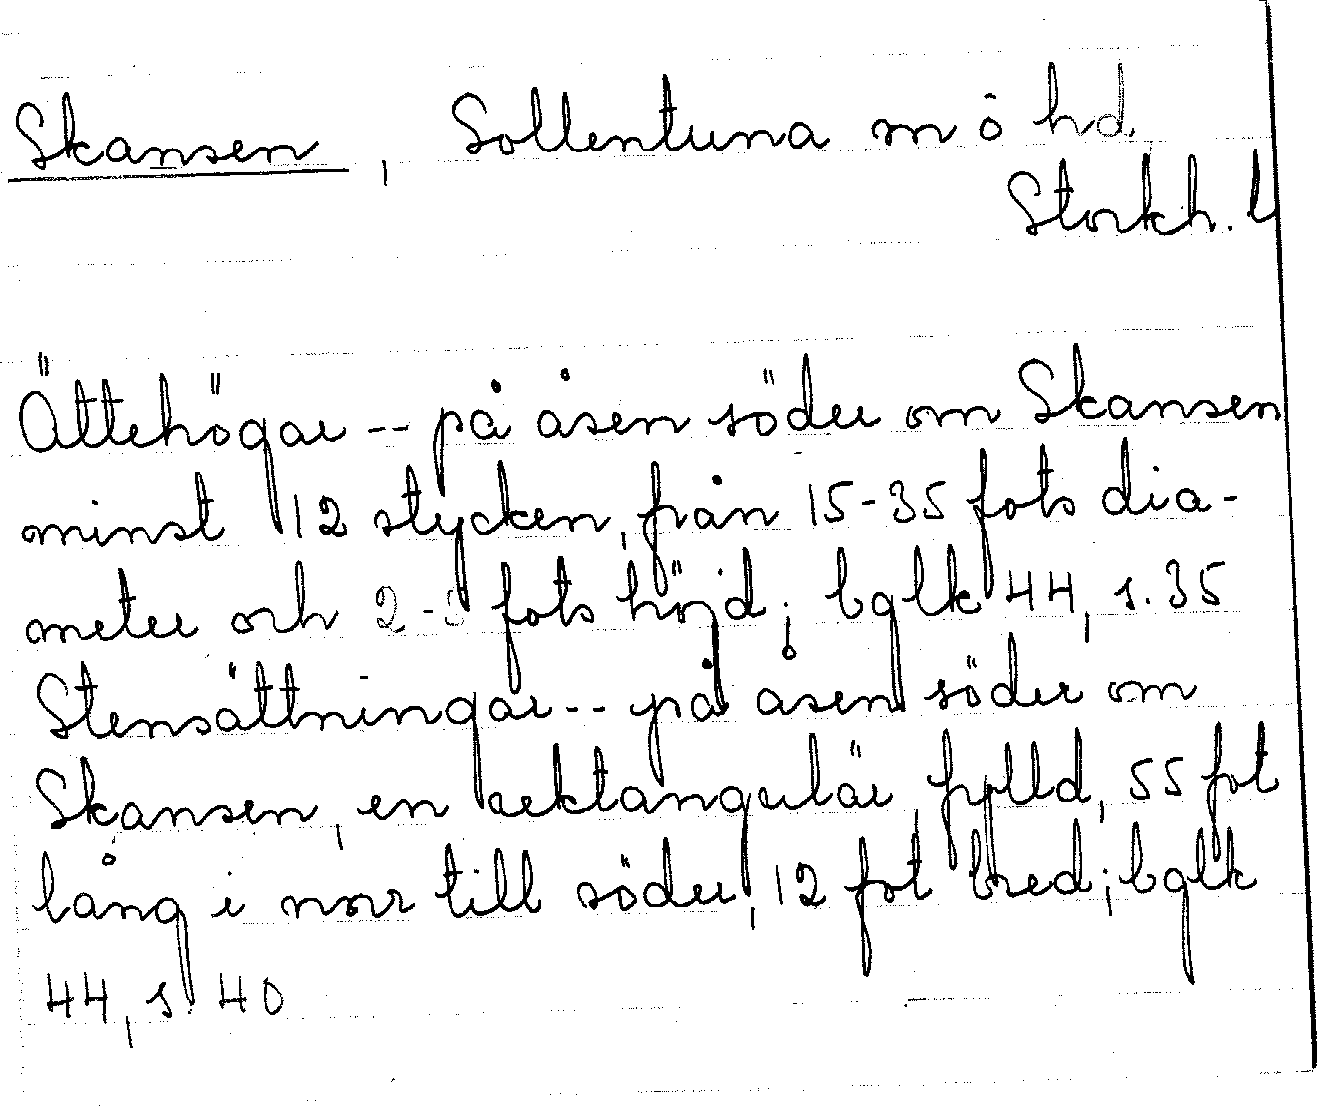 Skansen, Sollentuna sn ö hd.
Stockh. l
Ättehögar -- på åsen söder om Skansen
minst 12 stycken, från 15-35 fots dia-
meter och 2-3 fots höjd; bglk 44, s. 35
Stensättningar -- på åsen söder om
Skansen, en rektangulär, fylld, 55 fot
lång i norr till söder, 12 fot bred; bglk
44, s. 40